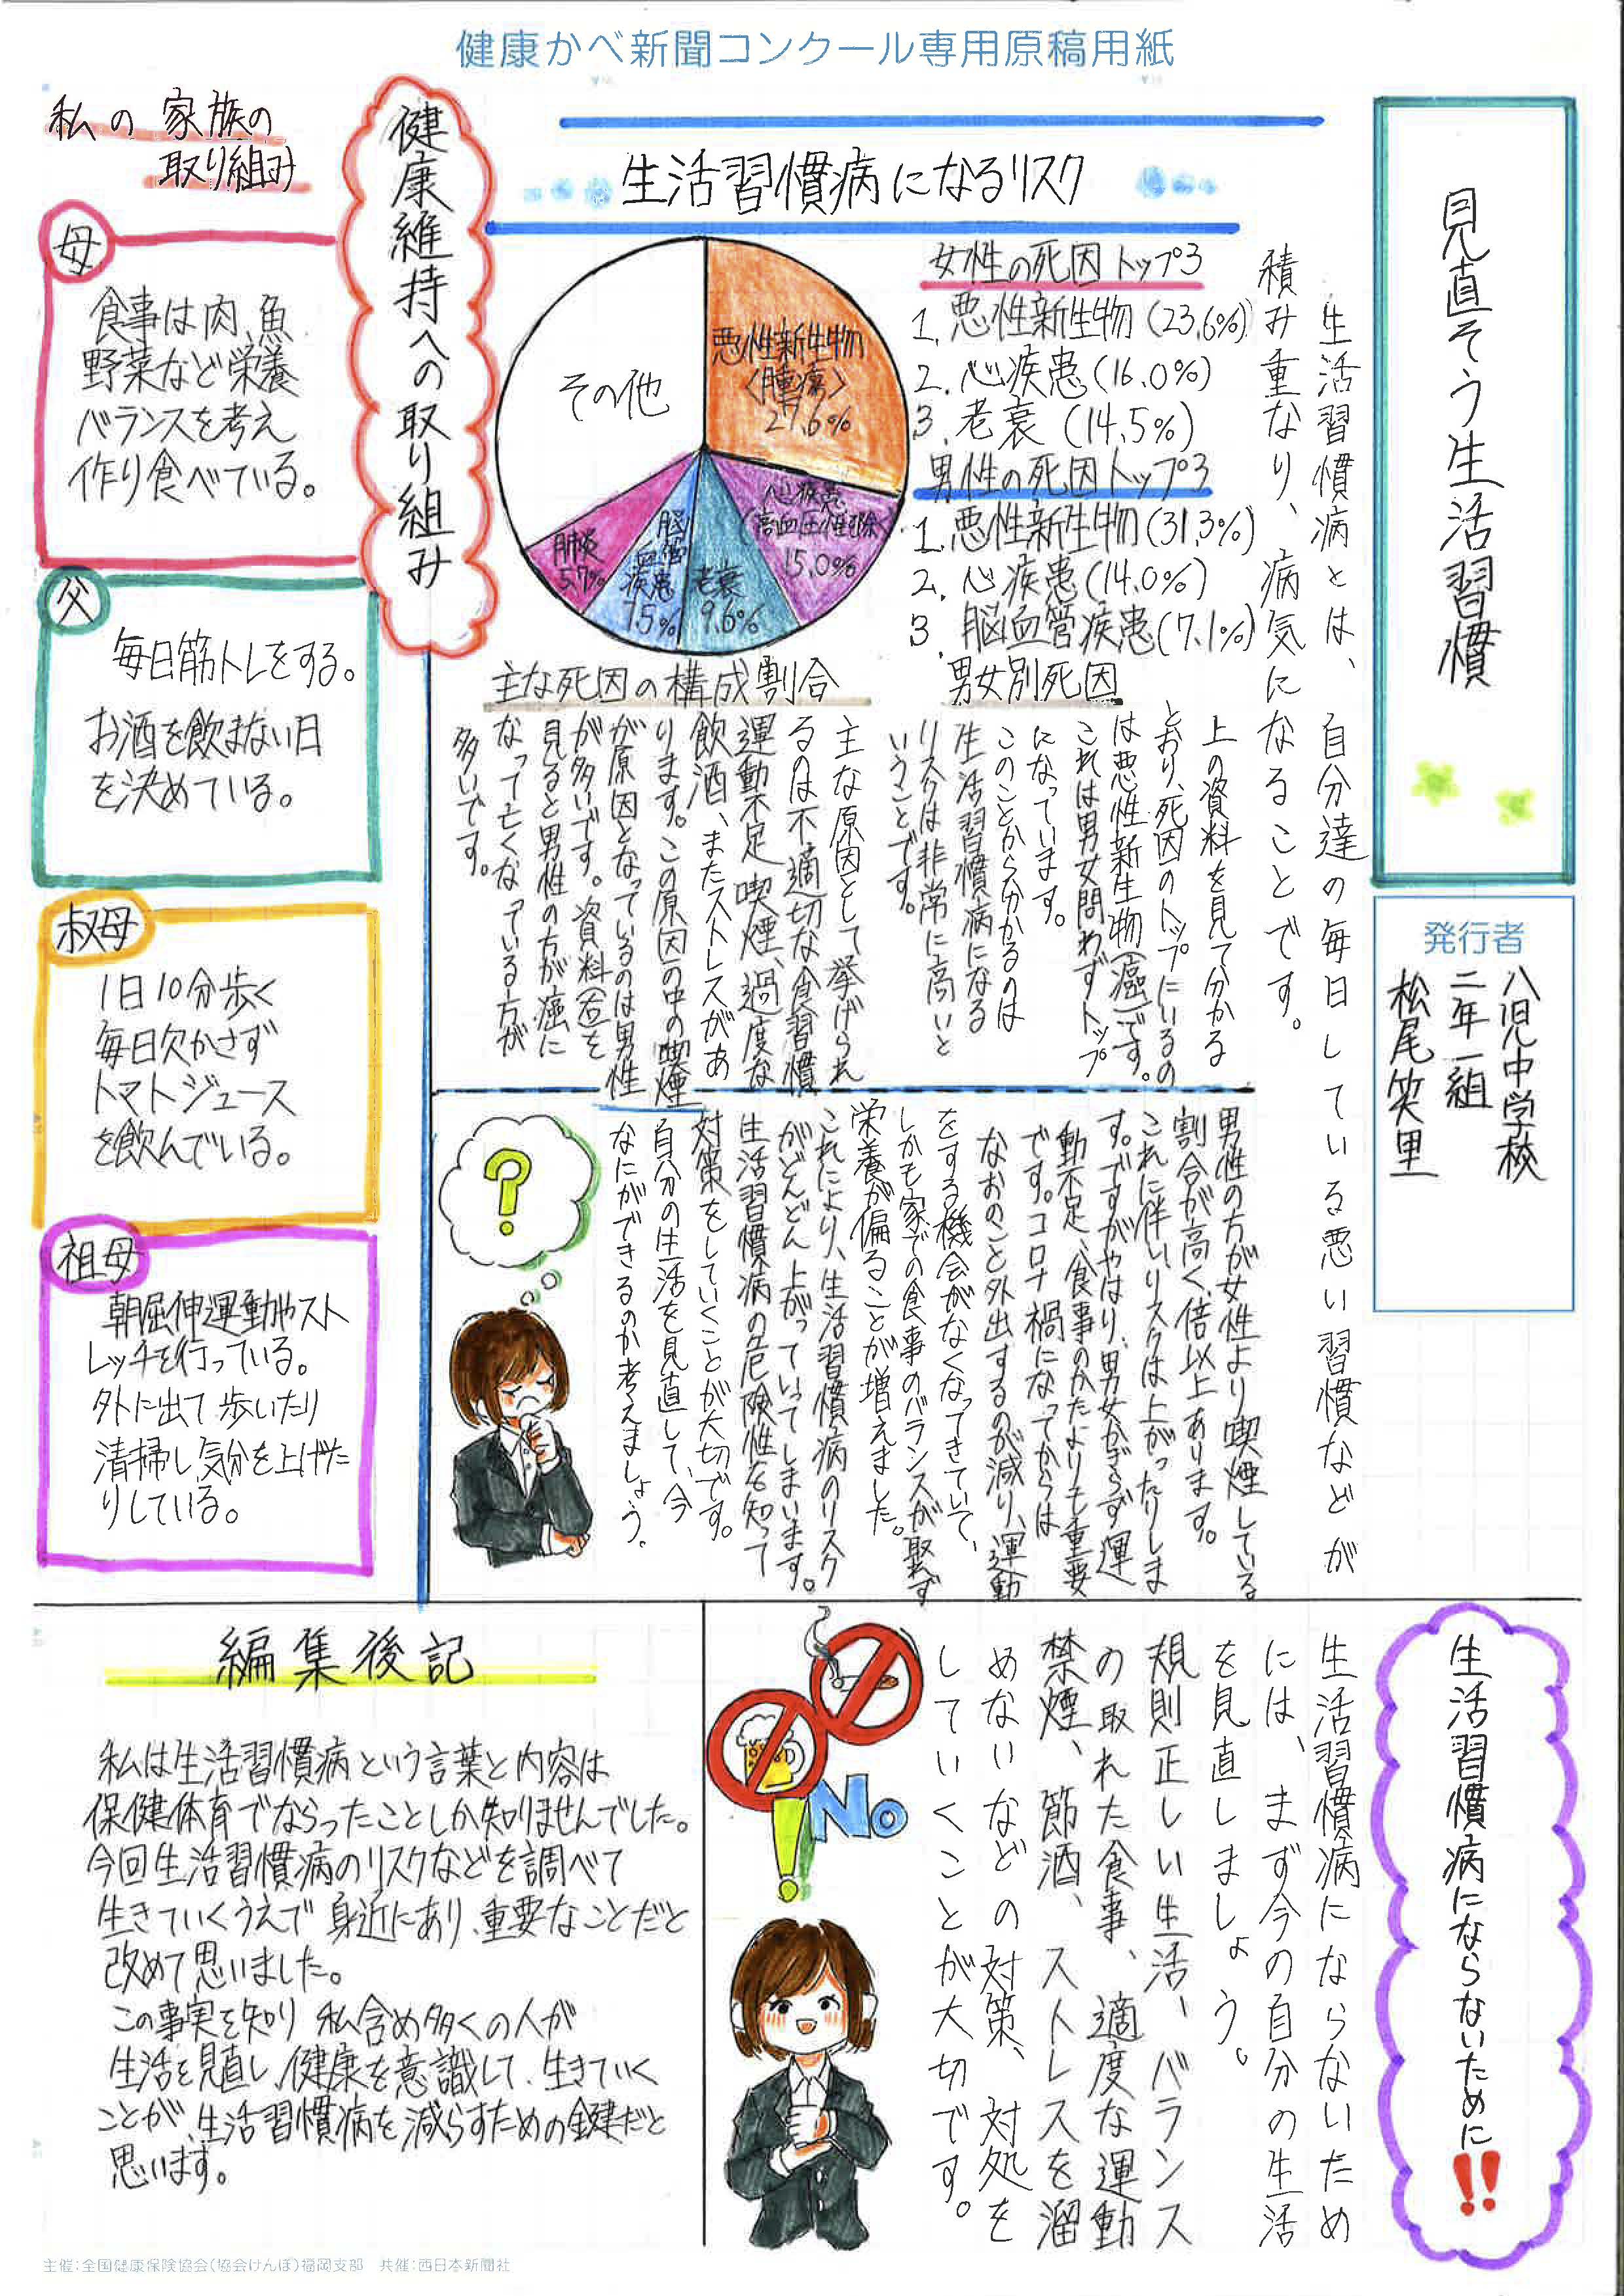 健康かべ新聞コンクール専用原稿用紙
見直そう生活習慣
発行者
八児中学校
二年一組
松尾笑里
生活習慣病とは、自分達の毎日している悪い習慣などが
積み重なり、病気になることです。
生活習慣病になるリスク
悪性新生物
〈腫瘍〉
27.6%
心疾患
(高血圧性除く)
15.0%
老衰
9.6%
脳
血管
疾患
7.5%
肺炎
5.7%
その他
主な死因の構成割合
女性の死因トップ3
1. 悪性新生物(23.6%)
2. 心疾患(16.0%)
3. 老衰(14.5%)
男性の死因トップ3
1. 悪性新生物(31.3%)
2. 心疾患(14.0%)
3. 脳血管疾患(7.1%)
男女別死因
上の資料を見て分かる
とおり、死因のトップにいるの
は悪性新生物(癌)です。
これは男女問わずトップ
になっています。
このことからわかるのは
生活習慣病になる
リスクは非常に高いと
いうことです。
主な原因として挙げられ
るのは不適切な食習慣
運動不足、喫煙、過度な
飲酒、またストレスがあ
ります。この原因の中の喫煙
が原因となっているのは男性
が多いです。資料(右)を
見ると男性の方が癌に
なって亡くなっている方が
多いです。
男性の方が女性より喫煙している
割合が高く、倍以上あります。
これに伴いリスクは上がったりしま
す。ですがやはり、男女かぎらず運
動不足、食事のかたよりも重要
です。コロナ禍になってからは
なおのこと外出するのが減り、運動
をする機会がなくなってきていて、
しかも家での食事のバランスが取れず
栄養が偏ることが増えました。
これにより、生活習慣病のリスク
がどんどん上がっていってしまいます。
生活習慣病の危険性を知って
対策をしていくことが大切です。
自分の生活を見直して、今
なにができるのか考えましょう。
?
健康維持への取り組み
私の家族の
取り組み
母
食事は肉、魚
野菜など栄養
バランスを考え
作り食べている。
父
毎日筋トレをする。
お酒を飲まない日
を決めている。
叔母
1日10分歩く
毎日欠かさず
トマトジュース
を飲んでいる。
祖母
朝屈伸運動やスト
レッチを行っている。
外に出て歩いたり
清掃し気分を上げた
りしている。
生活習慣病にならないために!!
生活習慣病にならないため
には、まず今の自分の生活
を見直しましょう。
規則正しい生活、バランス
の取れた食事、適度な運動
禁煙、節酒、ストレスを溜
めないなどの対策、対処を
していくことが大切です。
No!
編集後記
私は生活習慣病という言葉と内容は
保健体育でならったことしか知りませんでした。
今回生活習慣病のリスクなどを調べて
生きていくうえで身近にあり、重要なことだと
改めて思いました。
この事実を知り私含め多くの人が
生活を見直し、健康を意識して、生きていく
ことが、生活習慣病を減らすための鍵だと
思います。
主催:全国健康保険協会(協会けんぽ)福岡支部 共催:西日本新聞社